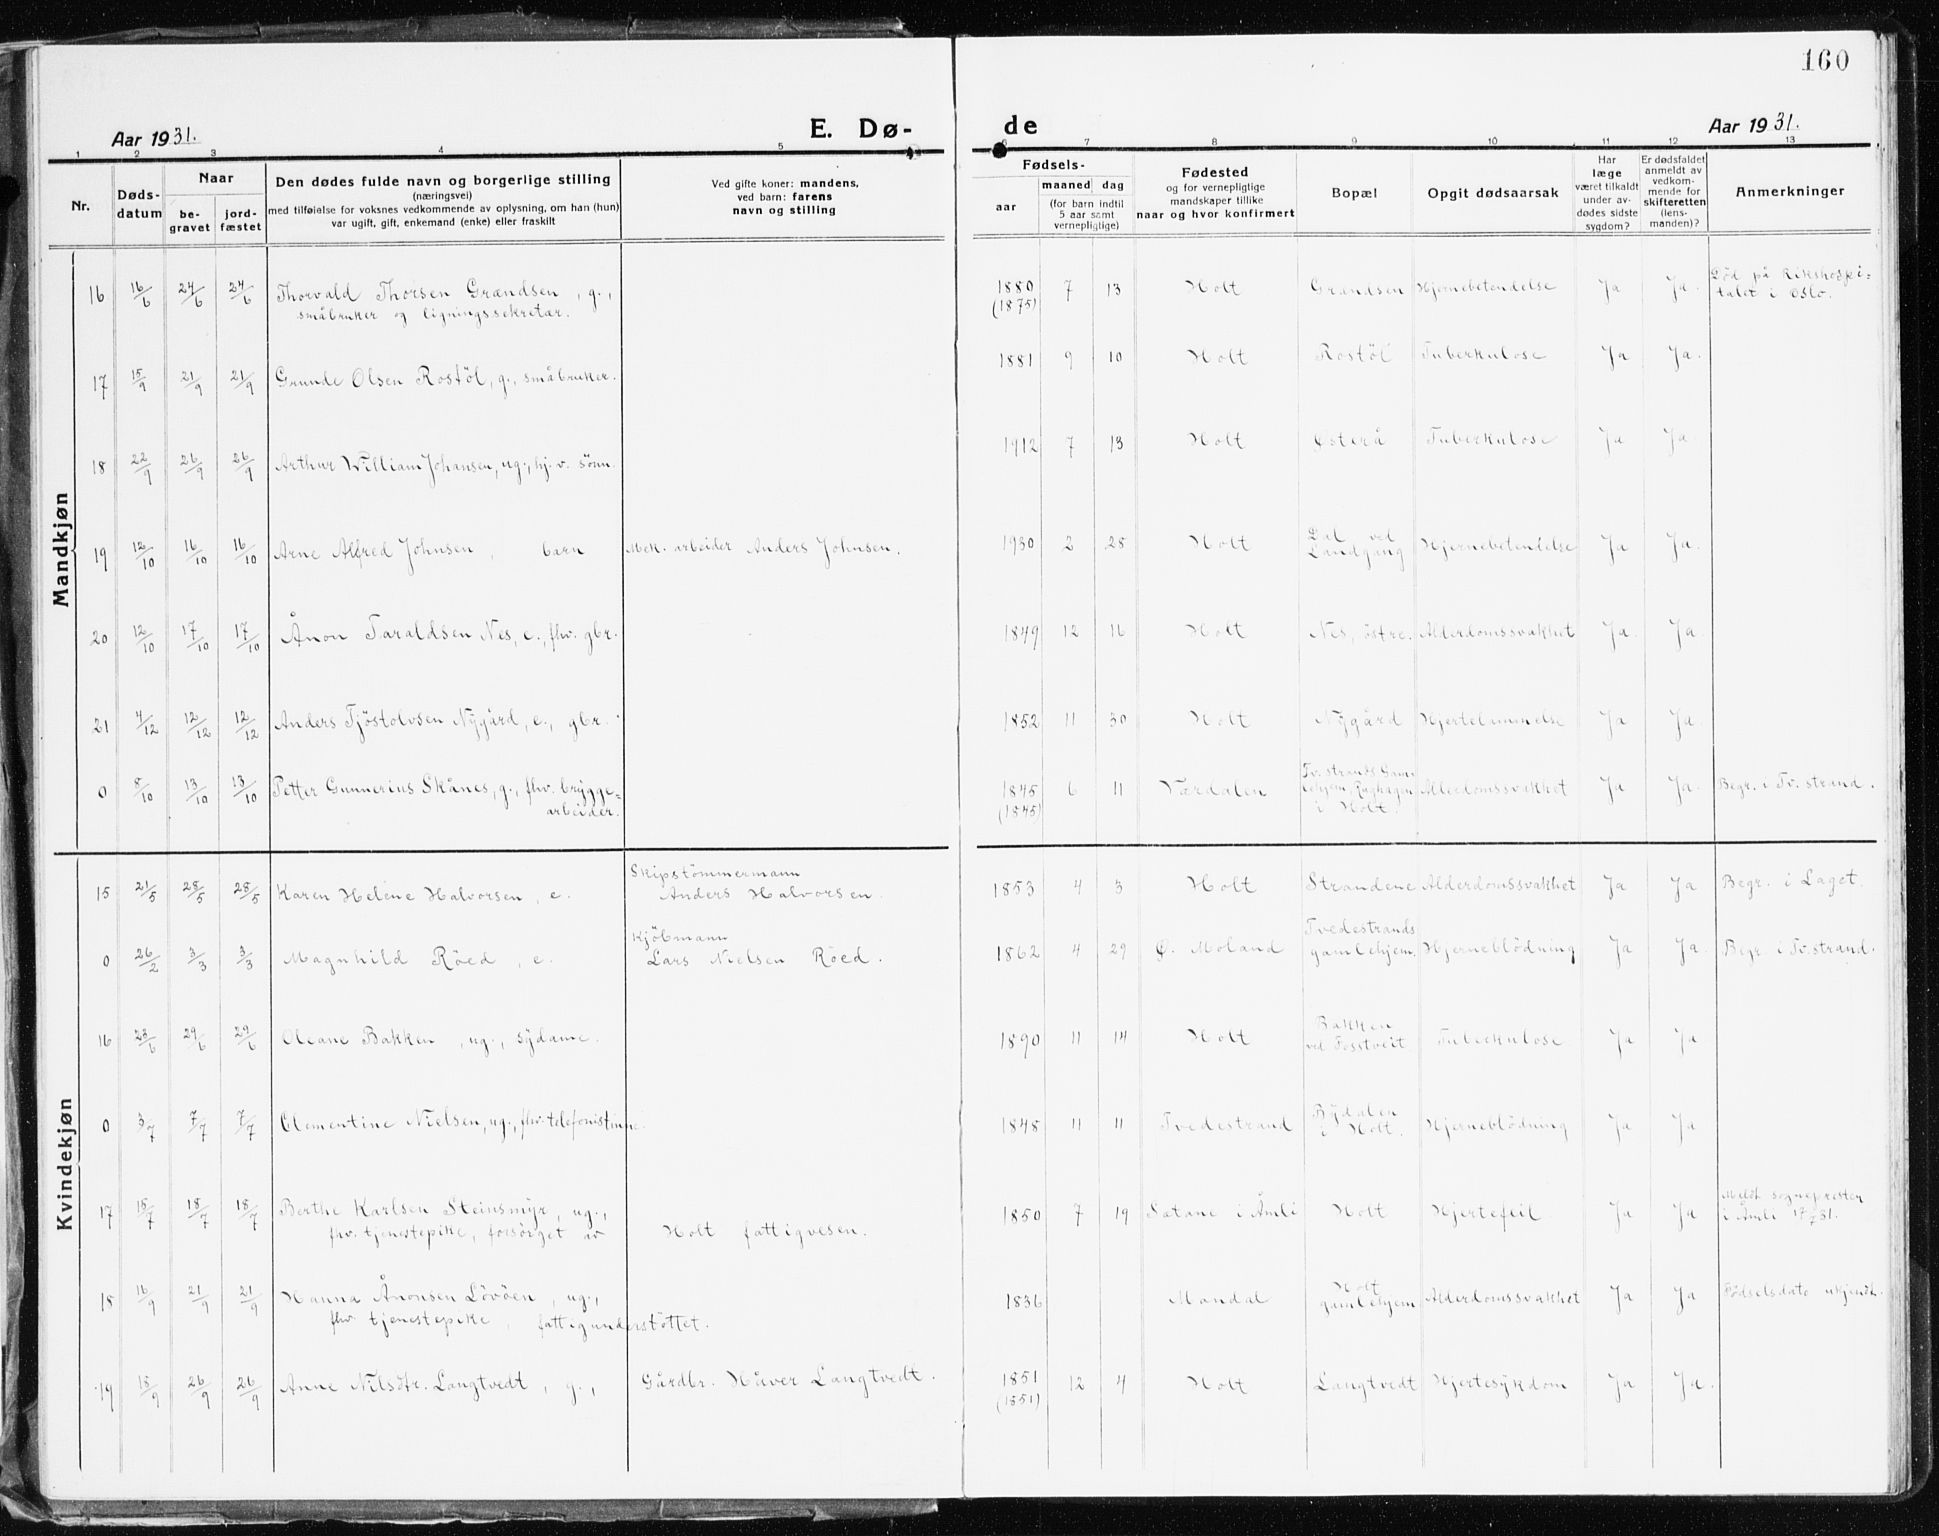 160
Aar 1931.
E. Dø-
de
Aar 1931.
1 2 3 4 5 6 7 8 9 10 11 12 13
Nr.
Døds-
datum
Naar
be-
gravet
jord-
fæstet
Den dødes fulde navn og borgerlige stilling
(næringsvei)
med tilføielse for voksnes vedkommende av oplysning, om han (hun)
var ugift, gift, enkemand (enke) eller fraskilt
Ved gifte koner: mandens,
ved barn: farens
navn og stilling
Fødsels-
aar
maaned dag
(for barn indtil
5 aar samt
vernepligtige)
Fødested
og for vernepligtige
mandskaper tillike
naar og hvor konfirmert
Bopæl
Opgit dødsaarsak
Har
læge
været tilkaldt
under av-
dødes sidste
sygdom?
Er dødsfaldet
anmeldt av
vedkom-
mende for
skifteretten
(lens-
manden)?
Anmerkninger
Mandkjøn
16 16/6 24/6 24/6 Thorvald Thorsen Grændsen, g.,
småbruker og ligningssekretær.
1880 7 13 Holt Grændsen Hjernebetendelse Ja Ja. Död på Rikshospi-
(1875) talet i Oslo.
17 15/9 21/9 21/9 Grunde Olsen Rostöl, g., småbruker.
1881 9 10 Holt Rostöl Tuberkulose Ja Ja.
18 22/9 26/9 26/9 Arthur William Johansen, ug., hj. v. sönn.
1912 7 13 Holt Østerå Tuberkulose Ja Ja.
19 12/10 16/10 16/10 Arne Alfred Johnsen, barn Mek. arbeider Anders Johnsen.
1930 2 28 Holt Dal ved
Landgang Hjernebetendelse Ja Ja.
20 12/10 17/10 17/10 Ånon Taraldsen Nes, e., fhv. gbr.
1849 12 16 Holt Nes, östre. Alderdomssvakhet Ja Ja.
21 4/12 12/12 12/12 Anders Tjöstolvsen Nygård, e., gbr.
1852 11 30 Holt Nygård Hjertelammelse Ja Ja.
0 8/10 13/10 13/10 Petter Gunnerius Skånes, g., fhv. brygge-
arbeider.
1845 6 11 Værdalen Tv.strands Gam-
(1845) i Holt. Alderdomssvakhet Ja Ja. Begr. i Tv.strand.
Kvindekjøn
15 21/5 28/5 28/5 Karen Helene Halvorsen, e. Skipstömmermann
Anders Halvorsen.
1853 4 3 Holt Strandene Alderdomssvakhet Ja Ja Begr. i Laget.
0 26/2 3/3 3/3 Magnhild Röed, e. Kjöbmann
Lars Nielsen Röed.
1862 4 29 Ø. Moland Tvedestrands
gamlehjem. Hjerneblödning Ja Ja. Begr. i Tv.strand.
16 23/6 29/6 29/6 Oleane Bakken, ug., sydame.
1890 11 14 Holt Bakken
ved Fosstveit Tuberkulose. Ja Ja
0 3/7 7/7 7/7 Clementine Nielsen, ug., fhv. telefonistinne.
1848 11 11 Tvedestrand Bydalen
i Holt. Hjerneblödning Ja Ja
17 15/7 18/7 18/7 Berthe Karlsen Steinsmyr, ug.,
fhv. tjenestepike, forsörget av Holt fattigvesen.
1850 7 19 Satane i Åmli Holt Hjertefeil. Ja Ja Meldt sognepresten
i Åmli 17/7 31.
18 16/9 21/9 21/9 Hanna Ånonsen Lövöen, ug.,
fhv. tjenestepike, fattigunderstöttet.
1836 Mandal Holt
gamlehjem Alderdomssvakhet Ja Ja Födselsdato ukjendt.
19 18/9 26/9 26/9 Anne Nilsdtr. Langtvedt, g., Gårdbr. Håver Langtvedt.
1851 12 4 Holt Langtvedt Hjertesykdom Ja Ja.
(1851)